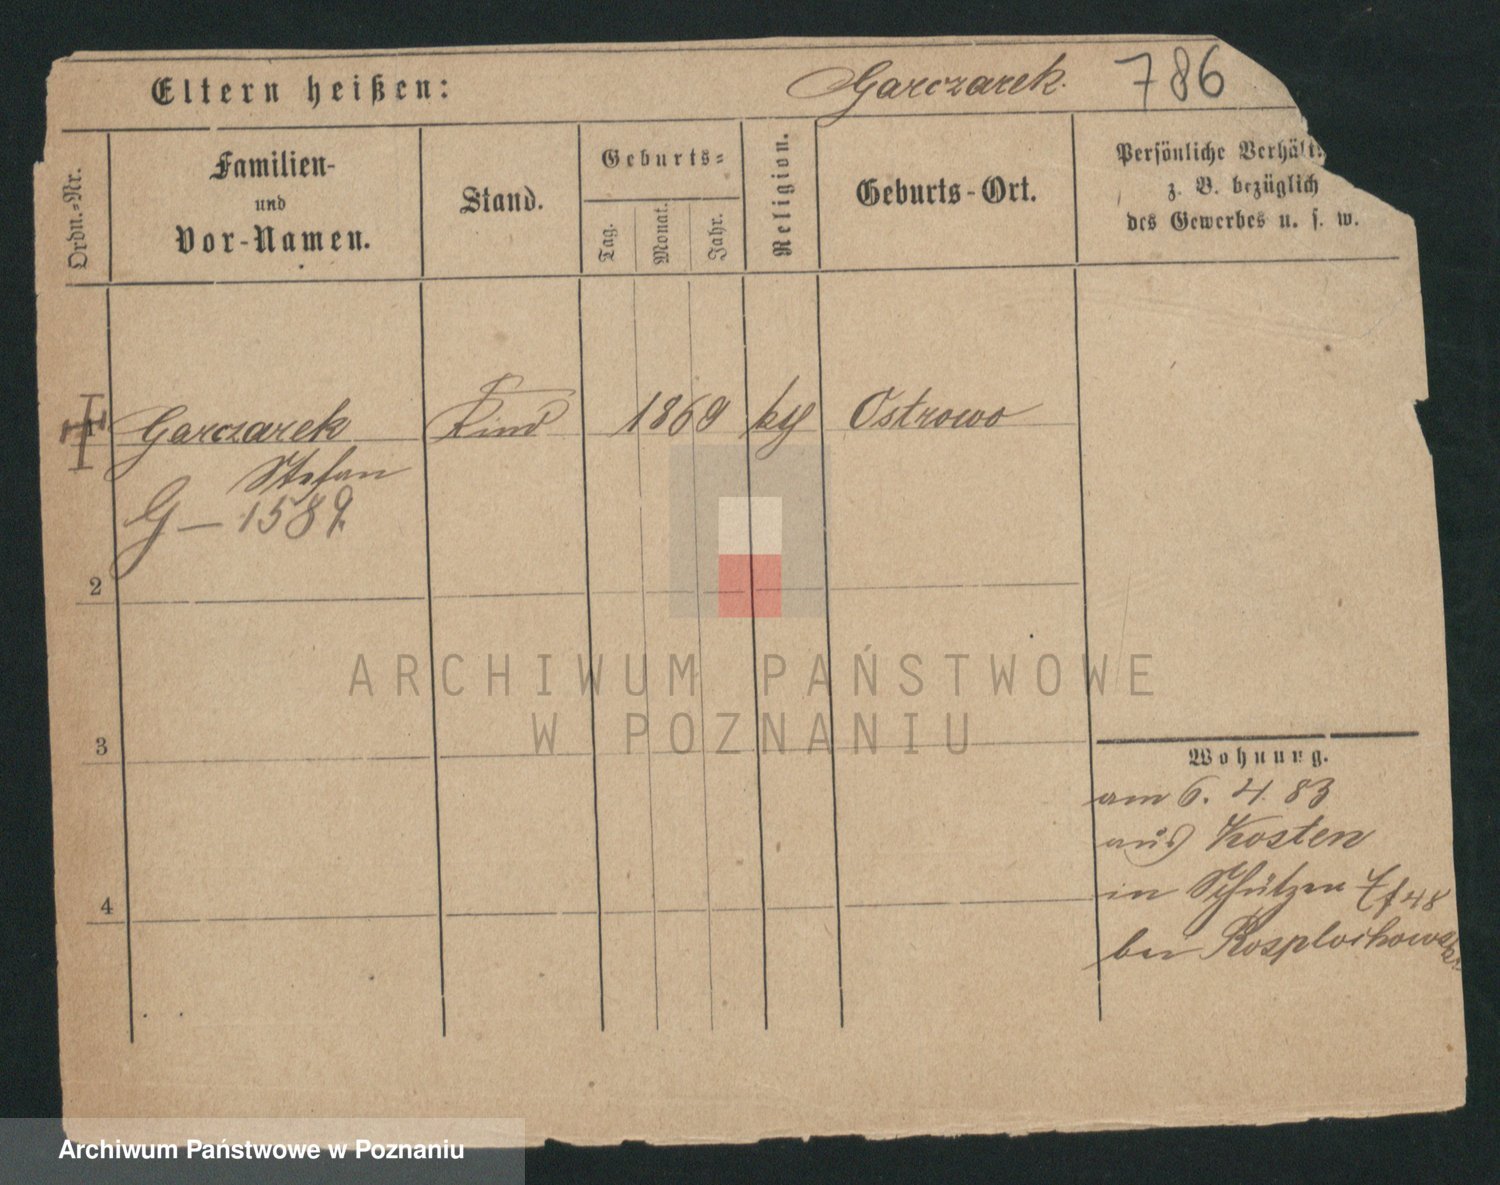 Eltern heißen: Garczarek. 786
Ordn.-Nr.
Familien-
und
Vor-Namen.
Stand.
Geburts-
Tag.
Monat.
Jahr.
Religion.
Geburts-Ort.
Persönliche Verhält
z. B. bezüglich
des Gewerbes u. s. w.
1 Garczarek Kind 1869 Ostrowo
Stefan
G – 1589
2
3
4
Wohnung.
am 6. 4. 83
aus Kosten
in Schützen 48
bei
ARCHIWUM PAŃSTWOWE
W POZNANIU
Archiwum Państwowe w Poznaniu